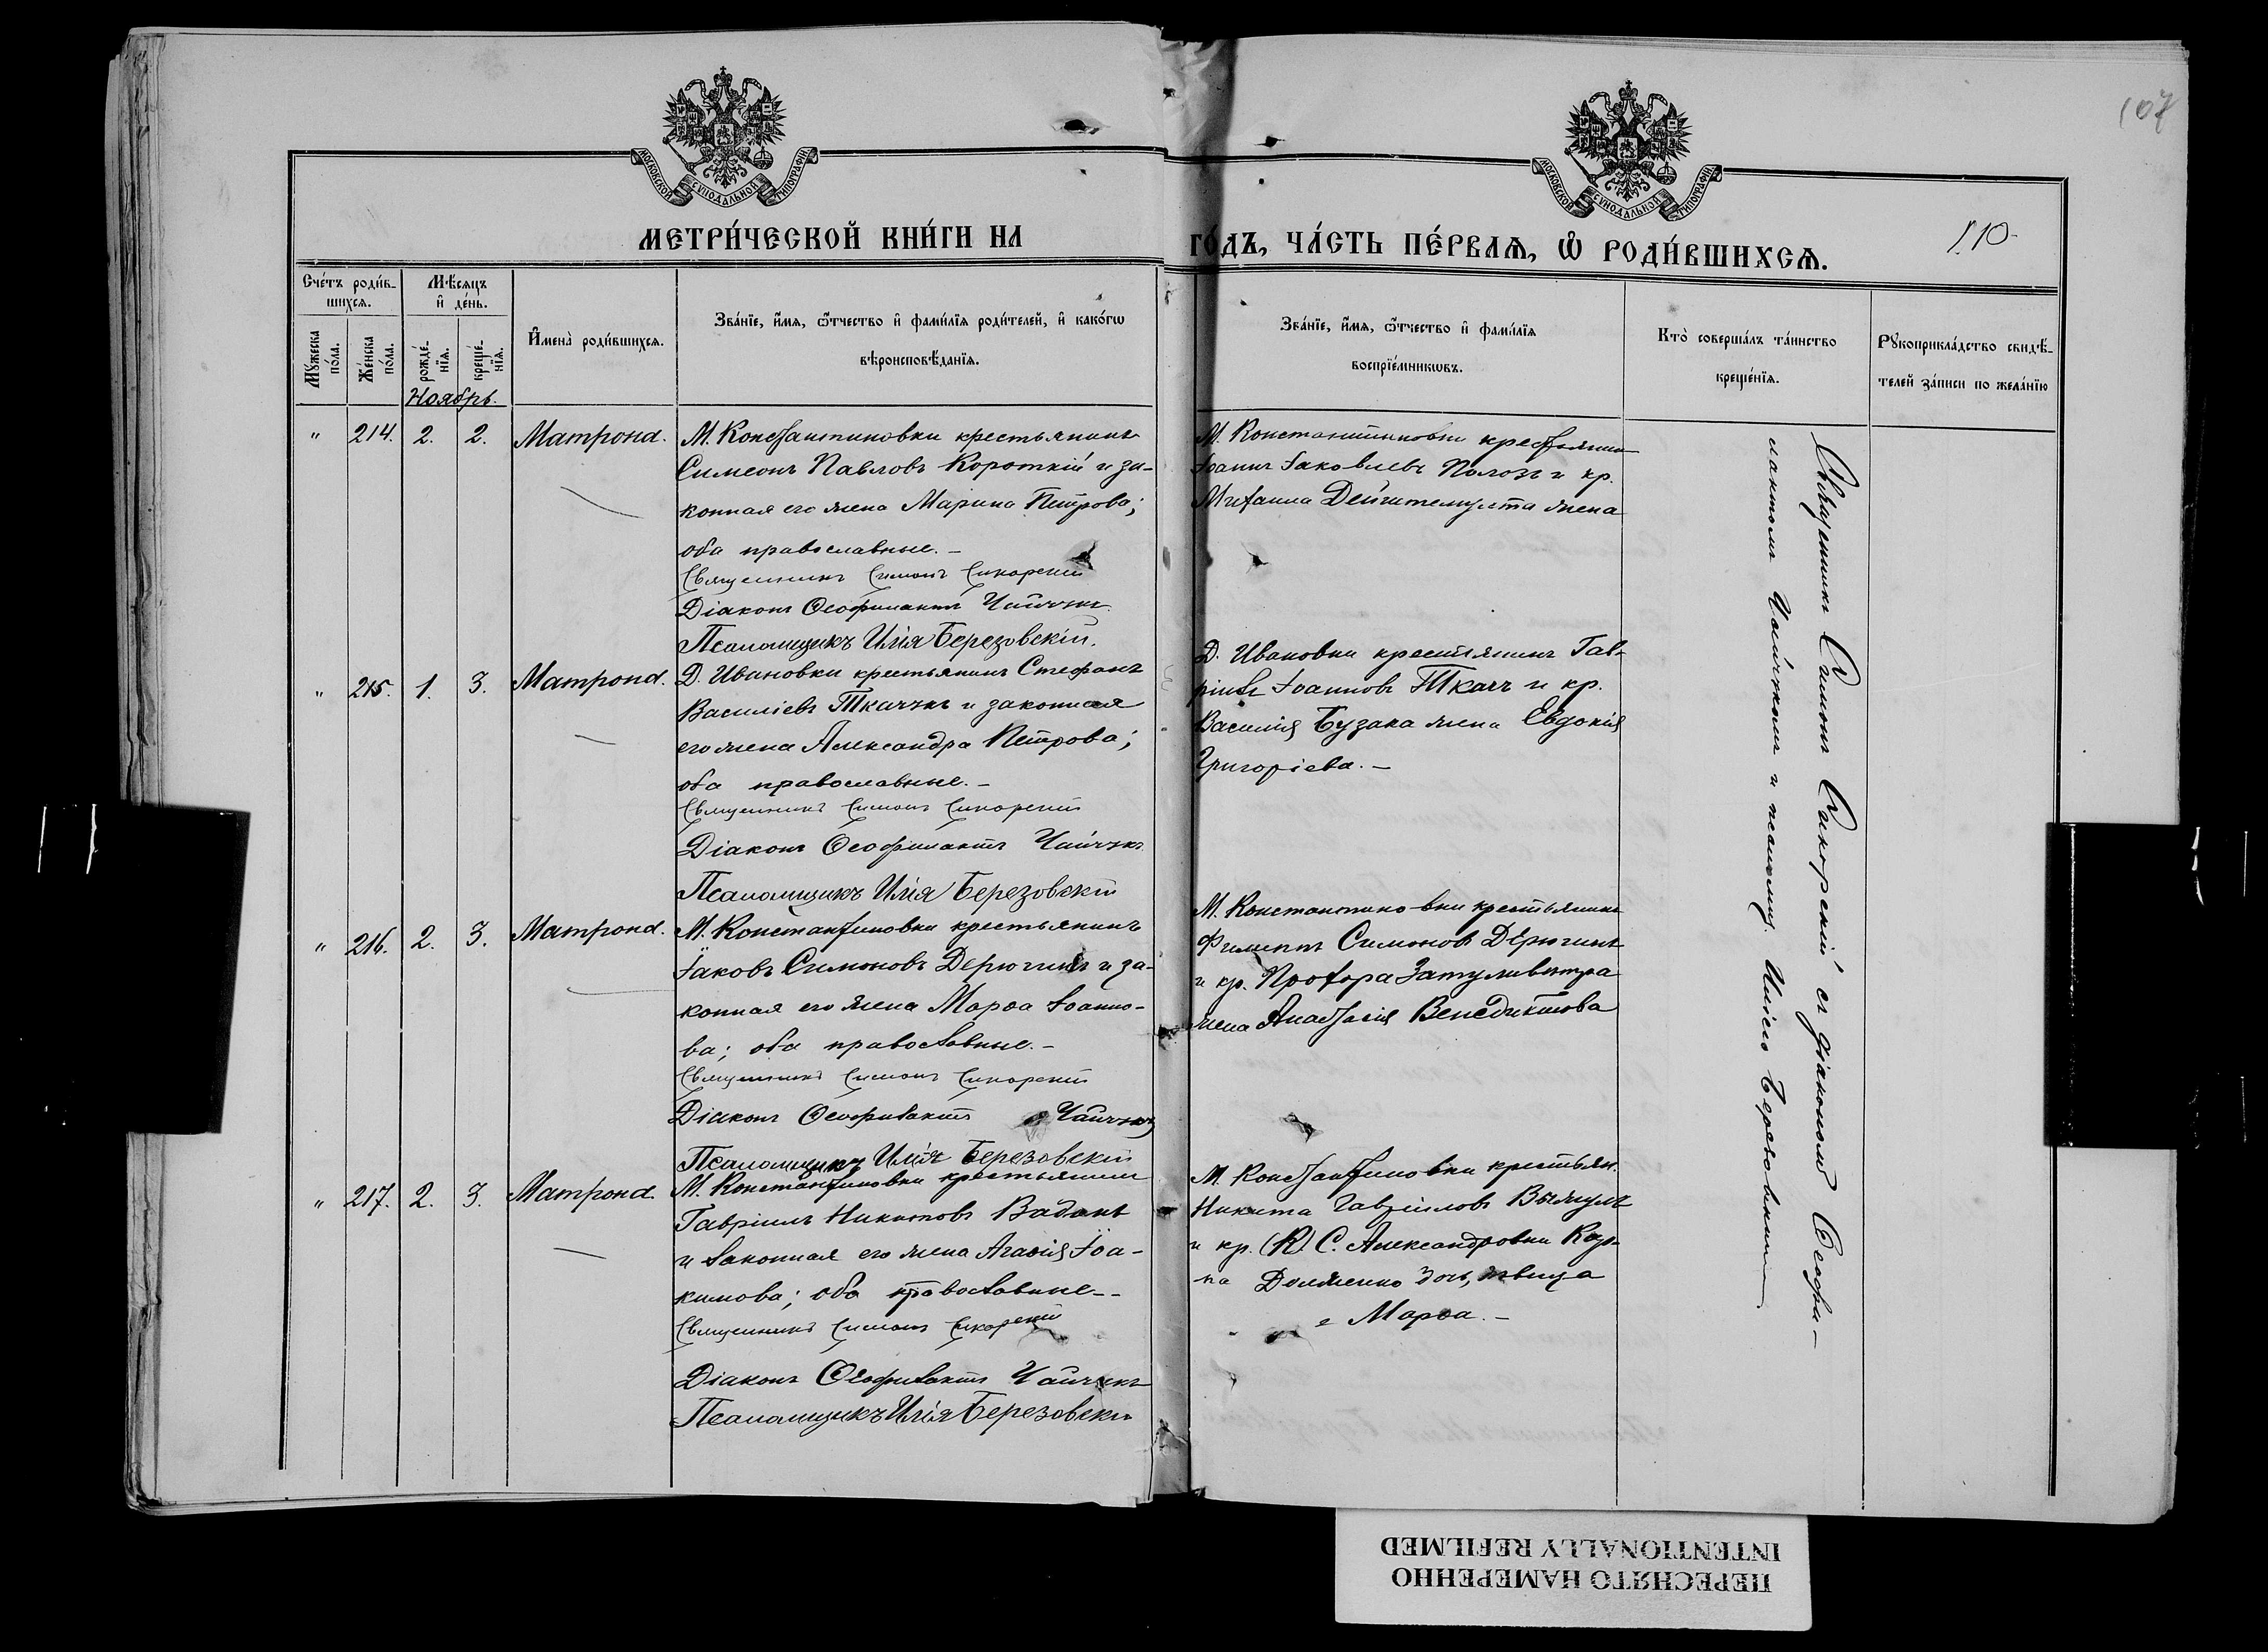 107
МОСКОВСКОЙ СѴНОДАЛЬНОЙ ТИПОГРАФІИ
МОСКОВСКОЙ СѴНОДАЛЬНОЙ ТИПОГРАФІИ
МЕТРИ́ЧЕСКОЙ КНИ́ГИ НА
ГО́ДЪ, ЧА́СТЬ ПЕ́РВАѦ, Ѡ҆ РОДИ́ВШИХСѦ.
110
Сче́тъ роди́в-
шихсѧ.
Мѣ́сѧцъ
и҆ де́нь.
Мꙋ́жеска
по́ла.
Же́нска
по́ла.
рожде́-
нїѧ.
креще́-
нїѧ.
И҆мена̀ роди́вшихсѧ.
Зва́нїе, и҆́мѧ, ѻ҆́тчество и҆ фами́лїѧ роди́телей, и҆ како́гѡ
вѣроисповѣ́данїѧ.
Зва́нїе, и҆́мѧ, ѻ҆́тчество и҆ фами́лїѧ
воспрїе́мникѡвъ.
Кто̀ соверша́лъ та́инство
креще́нїѧ.
Рꙋкоприкла́дство свидѣ́-
телей за́писи по жела́нїю
Ноябрь.
" 214. 2. 2. Матрона.
М. Константиновки крестьянинъ
Симеонъ Павловъ Короткій и за-
конная его жена Марина Петрова;
оба православные. —
Священникъ Симонъ Сикорскій
Діаконъ Ѳеофилактъ Чайчукъ
Псаломщикъ Илія Березовскій.
М. Константиновки крестьянинъ
Іоаннъ Іаковлевъ Полозъ и кр.
Михаила жена
" 215. 1. 3. Матрона.
Д. Ивановки крестьянинъ Стефанъ
Василіевъ Ткачукъ и законная
его жена Александра Петрова;
оба православные. —
Священникъ Симонъ Сикорскій
Діаконъ Ѳеофилактъ Чайчукъ
Псаломщикъ Илія Березовскій
Д. Ивановки крестьянинъ Гав-
ріилъ Іоанновъ Ткачъ и кр.
Василія Бузака жена Евдокія
Григоріева. —
" 216. 2. 3. Матрона.
М. Константиновки крестьянинъ
Іаковъ Симоновъ Дерюгинъ и за-
конная его жена Марѳа Іоанно-
ва; оба православные. —
Священникъ Симонъ Сикорскій
Діаконъ Ѳеофилактъ Чайчукъ
Псаломщикъ Илія Березовскій
М. Константиновки крестьянинъ
Филиппъ Симоновъ Дерюгинъ
и кр. Прохора Затуливитра
жена Анастасія Венедиктова
" 217. 2. 3. Матрона.
М. Константиновки крестьянинъ
Гавріилъ Никитовъ
и законная его жена Агаѳія Іоа-
кимова; оба православные. —
Священникъ Симонъ Сикорскій
Діаконъ Ѳеофилактъ Чайчукъ
Псаломщикъ Илія Березовскій
М. Константиновки крестьян.
Никита Гавріиловъ
и кр. С. Александровки Кар-
па Долженко дочь, дѣвица
Марѳа. —
Священникъ Симонъ Сикорскій съ діакономъ Ѳеофи-
лактомъ Чайчукомъ и псаломщ. Иліею Березовскимъ
ПЕРЕСНЯТО НАМЕРЕННО
INTENTIONALLY REFILMED